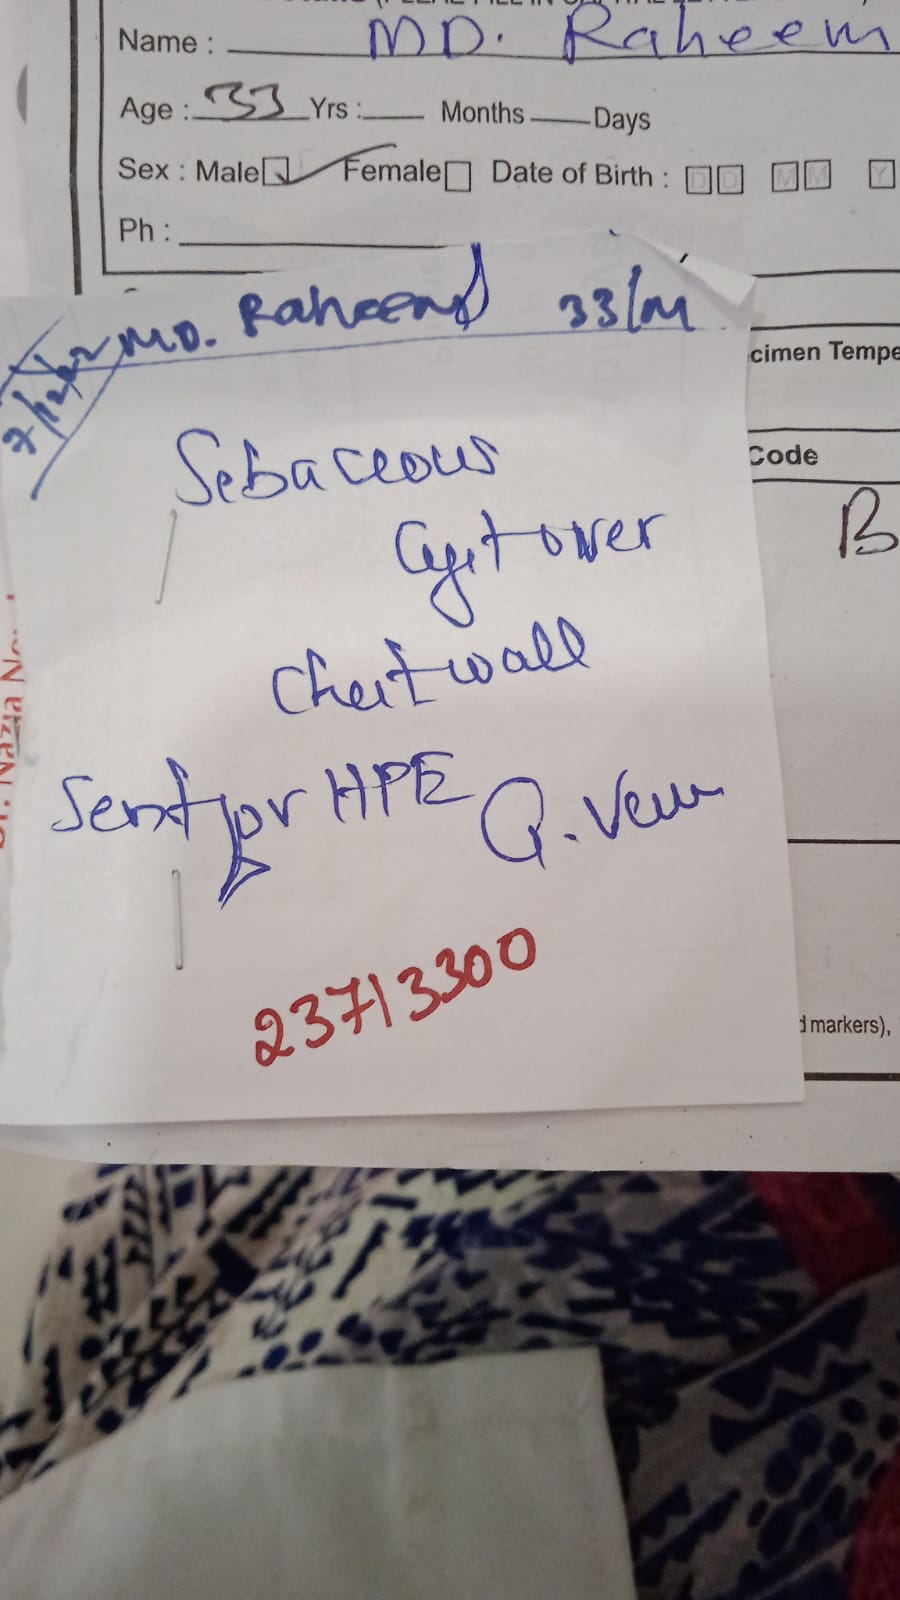 Name : MD. Raheem
Age : 33 Yrs : Months Days
Sex : Male Female Date of Birth : DD MM Y
Ph :
MD. Raheem 33/M
Sebaceous
Cyst over
Chest wall
Sent for HPE
23713300
cimen Tempe
Code
B
d markers),